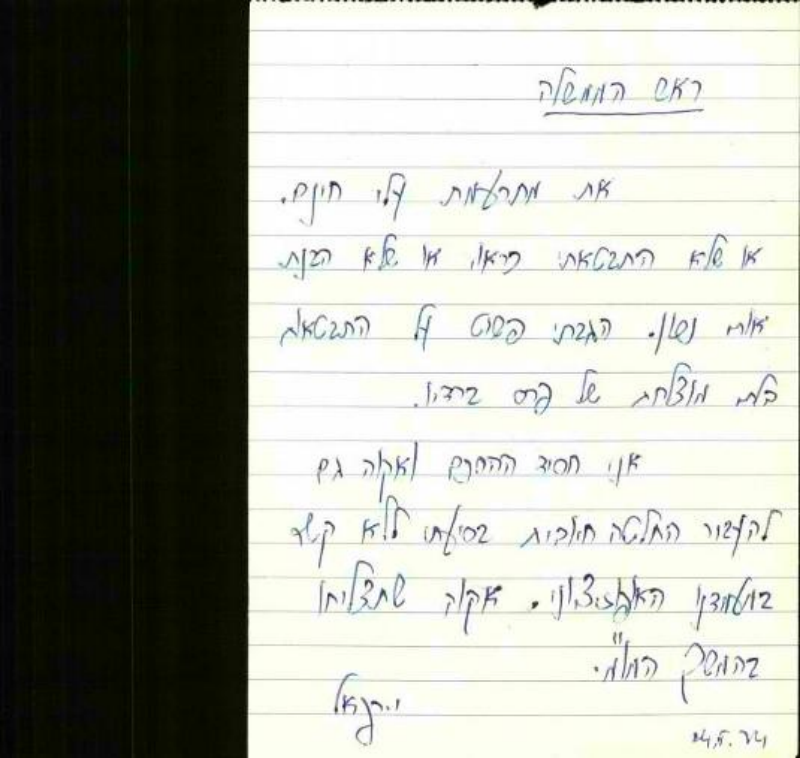 ראש הממשלה
את מתרעמת עלי חינם.
או שלא התבטאתי כראוי או שלא הבנת
אותי נכון. הגבתי פשוט על התבטאות
בלתי מוצלחת של פרס ברדיו.
אני חסיד ההסכם ואקוה גם
להעבור החלטה חיובית בסיעתי ללא קשר
במעמדנו האופוזיציוני. אקוה שתצליחו
בהמשך המו"מ.
24.5.74